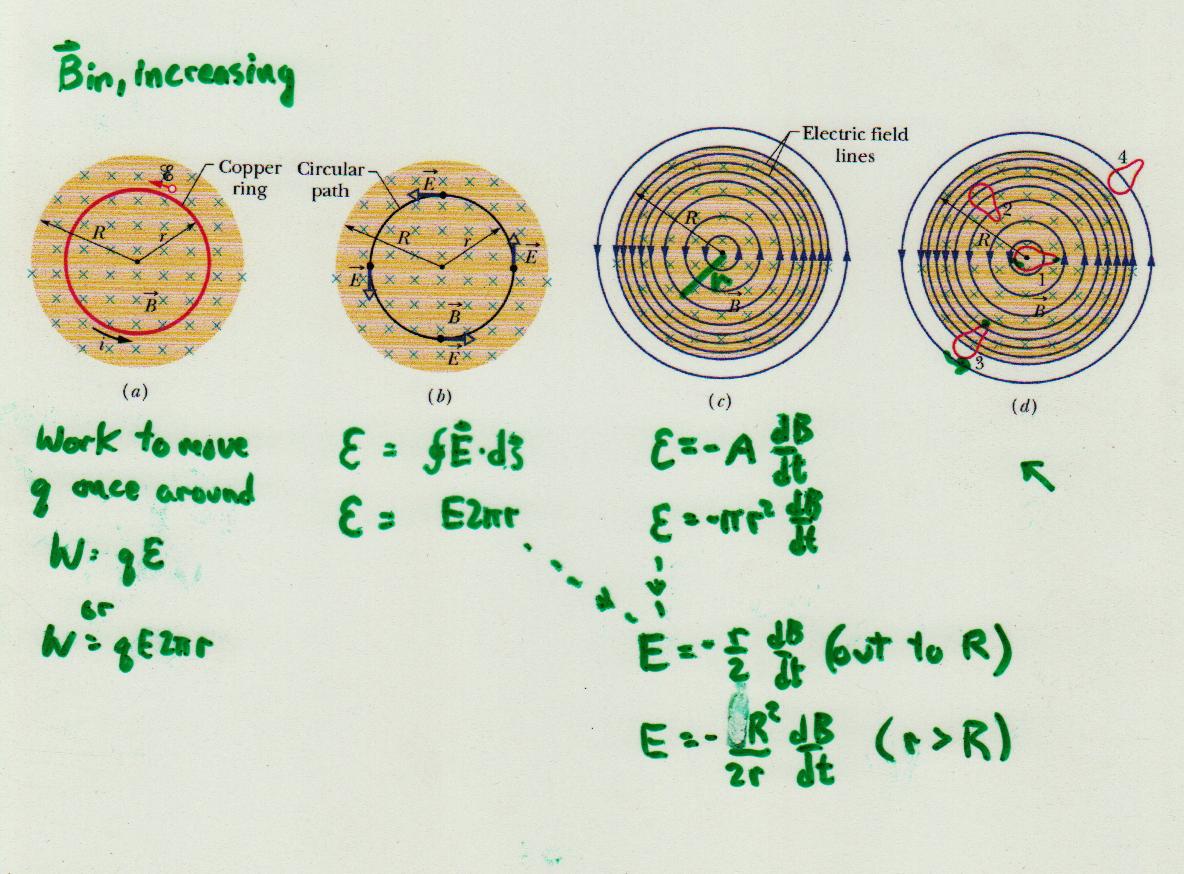 B⃗ in, increasing
Copper ring
Circular path
Electric field lines
ℰ
R
r
B⃗
i
(a)
E⃗
E⃗
E⃗
E⃗
R
r
B⃗
(b)
R
r
B⃗
(c)
4
2
R
1
B⃗
3
(d)
Work to move
q once around
W = qℰ
or
W = qE2πr
ℰ = ∮E⃗·ds⃗
ℰ = E2πr
ℰ = -A dB/dt
ℰ = -πr² dB/dt
E = - r/2 dB/dt (out to R)
E = - R²/2r dB/dt (r > R)